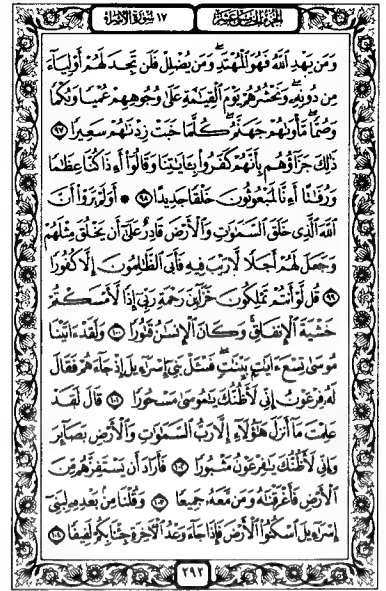 الجزء الخامس عشر
١٧ سورة الإسراء
وَمَن يَهْدِ ٱللَّهُ فَهُوَ ٱلْمُهْتَدِ ۖ وَمَن يُضْلِلْ فَلَن تَجِدَ لَهُمْ أَوْلِيَآءَ
مِن دُونِهِۦ ۖ وَنَحْشُرُهُمْ يَوْمَ ٱلْقِيَٰمَةِ عَلَىٰ وُجُوهِهِمْ عُمْيًا وَبُكْمًا
وَصُمًّا ۖ مَّأْوَىٰهُمْ جَهَنَّمُ ۖ كُلَّمَا خَبَتْ زِدْنَٰهُمْ سَعِيرًا ٩٧
ذَٰلِكَ جَزَآؤُهُم بِأَنَّهُمْ كَفَرُوا۟ بِـَٔايَٰتِنَا وَقَالُوٓا۟ أَءِذَا كُنَّا عِظَٰمًا
وَرُفَٰتًا أَءِنَّا لَمَبْعُوثُونَ خَلْقًا جَدِيدًا ٩٨ ۞ أَوَلَمْ يَرَوْا۟ أَنَّ
ٱللَّهَ ٱلَّذِى خَلَقَ ٱلسَّمَٰوَٰتِ وَٱلْأَرْضَ قَادِرٌ عَلَىٰٓ أَن يَخْلُقَ مِثْلَهُمْ
وَجَعَلَ لَهُمْ أَجَلًا لَّا رَيْبَ فِيهِ فَأَبَى ٱلظَّٰلِمُونَ إِلَّا كُفُورًا
٩٩ قُل لَّوْ أَنتُمْ تَمْلِكُونَ خَزَآئِنَ رَحْمَةِ رَبِّىٓ إِذًا لَّأَمْسَكْتُمْ
خَشْيَةَ ٱلْإِنفَاقِ ۚ وَكَانَ ٱلْإِنسَٰنُ قَتُورًا ١٠٠ وَلَقَدْ ءَاتَيْنَا
مُوسَىٰ تِسْعَ ءَايَٰتٍۭ بَيِّنَٰتٍ ۖ فَسْـَٔلْ بَنِىٓ إِسْرَٰٓءِيلَ إِذْ جَآءَهُمْ فَقَالَ
لَهُۥ فِرْعَوْنُ إِنِّى لَأَظُنُّكَ يَٰمُوسَىٰ مَسْحُورًا ١٠١ قَالَ لَقَدْ
عَلِمْتَ مَآ أَنزَلَ هَٰٓؤُلَآءِ إِلَّا رَبُّ ٱلسَّمَٰوَٰتِ وَٱلْأَرْضِ بَصَآئِرَ
وَإِنِّى لَأَظُنُّكَ يَٰفِرْعَوْنُ مَثْبُورًا ١٠٢ فَأَرَادَ أَن يَسْتَفِزَّهُم مِّنَ
ٱلْأَرْضِ فَأَغْرَقْنَٰهُ وَمَن مَّعَهُۥ جَمِيعًا ١٠٣ وَقُلْنَا مِنۢ بَعْدِهِۦ لِبَنِىٓ
إِسْرَٰٓءِيلَ ٱسْكُنُوا۟ ٱلْأَرْضَ فَإِذَا جَآءَ وَعْدُ ٱلْـَٔاخِرَةِ جِئْنَا بِكُمْ لَفِيفًا ١٠٤
٢٩٢